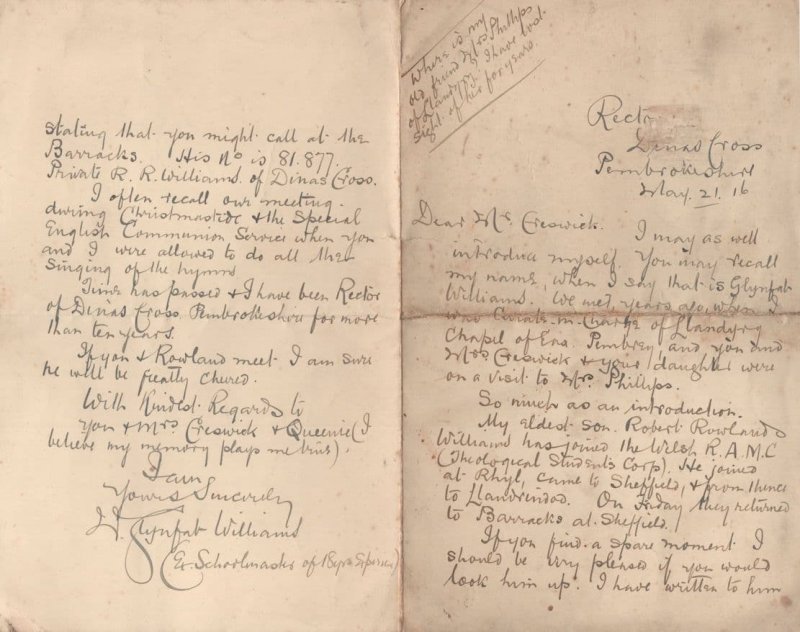 Where is my
old friend Mrs Phillips
of Llandyry? I have lost
sight of her for years.
Rectory
Dinas Cross
Pembrokeshire
May. 21. 16
Dear Mr. Creswick. I may as well
introduce myself. You may recall
my name, when I say that is Glynfab
Williams. We met, years ago, when I
was Curate-in-Charge of Llandyry
Chapel of Ease Pembrey, and you and
Mrs. Creswick & your daughter were
on a visit to Mrs. Phillips.
So much as an introduction.
My eldest son. Robert Rowland
Williams has joined the Welsh R.A.M.C
(Theological Students Corp). He joined
at Rhyl, came to Sheffield, & from thence
to Llandrindod. On Friday they returned
to Barracks at Sheffield.
If you find a spare moment I
should be very pleased if you would
look him up. I have written to him
stating that you might call at the
Barracks. His No is 81.877.
Private R. R. Williams. of Dinas Cross.
I often recall our meeting.
during Christmastide & the Special
English Communion Service when you
and I were allowed to do all the
Singing of the hymns
Time has passed & I have been Rector
of Dinas Cross Pembrokeshire for more
than ten years.
If you & Rowland meet I am sure
he will be greatly cheered.
With Kindest Regards to
you & Mrs Creswick & Queenie (I
believe my memory plays me true).
I am
Yours Sincerely
Glynfab Williams
(Ex Schoolmaster of 18 yrs